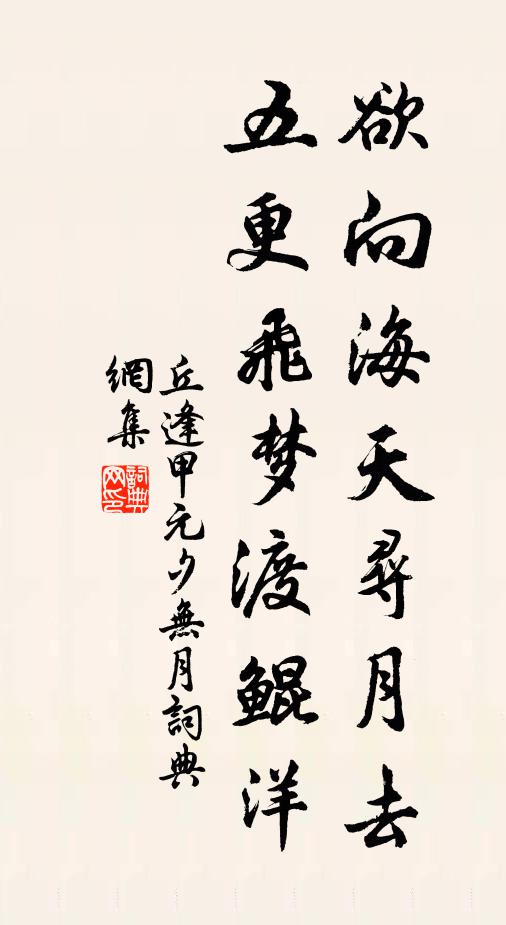 欲向海天尋月去
五更飛梦渡鯤洋
丘逢甲元夕無月詞典
網集
詞典
网印